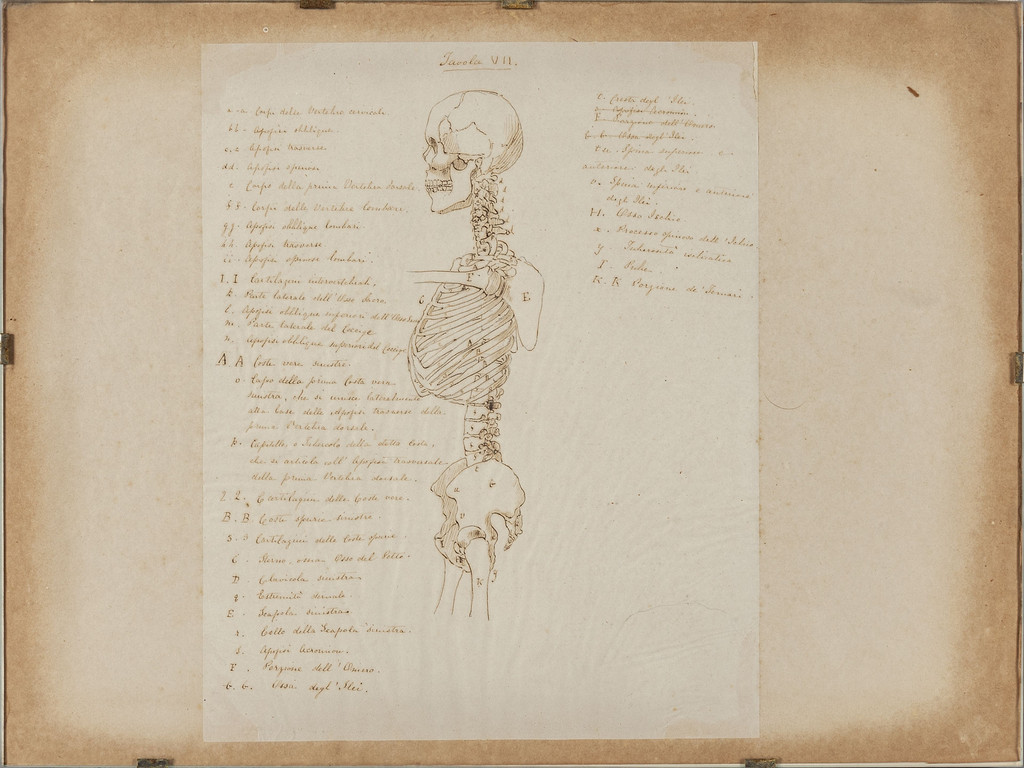 Tavola VII.
a-a Corpi delle Vertebre cervicali.
bb - Apofisi obblique.
c.c Apofisi trasverse.
dd. Apofisi spinose.
e Corpo della prima Vertebra dorsale.
f f - Corpi delle Vertebre lombari.
gg - Apofisi obblique lombari.
hh - Apofisi trasverse
ii - Apofisi spinose lombari.
1. 1 Cartilagini intervertebrali.
k. Parte laterale dell'Osso Sacro.
l. Apofisi obblique superiori dell'Osso
m. Parte laterale del Coccige
n. Apofisi obblique superiori del Coccige
A A Coste vere sinistre.
o. Capo della prima Costa vera
sinistra, che si unisce lateralmente
alla base della Apofisi trasversa della
prima Vertebra dorsale.
p. Capitello o Tubercolo della detta Costa,
che si articola coll' Apofisi trasversale
della prima Vertebra dorsale.
2 2. Cartilagini delle Coste vere.
B. B Coste spurie sinistre.
3. 3 Cartilagini delle Coste spurie.
C. Sterno, ossia Osso del Petto
D. Clavicola sinistra
q. Estremità sternale.
E. Scapola sinistra
r. Collo della Scapola sinistra.
s. Apofisi Acromion.
F. Porzione dell' Omero.
G. G. Ossa degl' Ilei.
t. Cresta degl' Ilei.
Apofisi Acromion.
F. Porzione dell' Omero
G. G. Ossa degl' Ilei.
u. Spina superiore e
anteriore degli Ilei
v. Spina inferiore e anteriore
degli Ilei.
H. Osso Ischio
x. Processo spinoso dell' Ischio
y. Tuberosità
I. Pube.
K. K Porzione de' Femori.
C
F
E
G
K